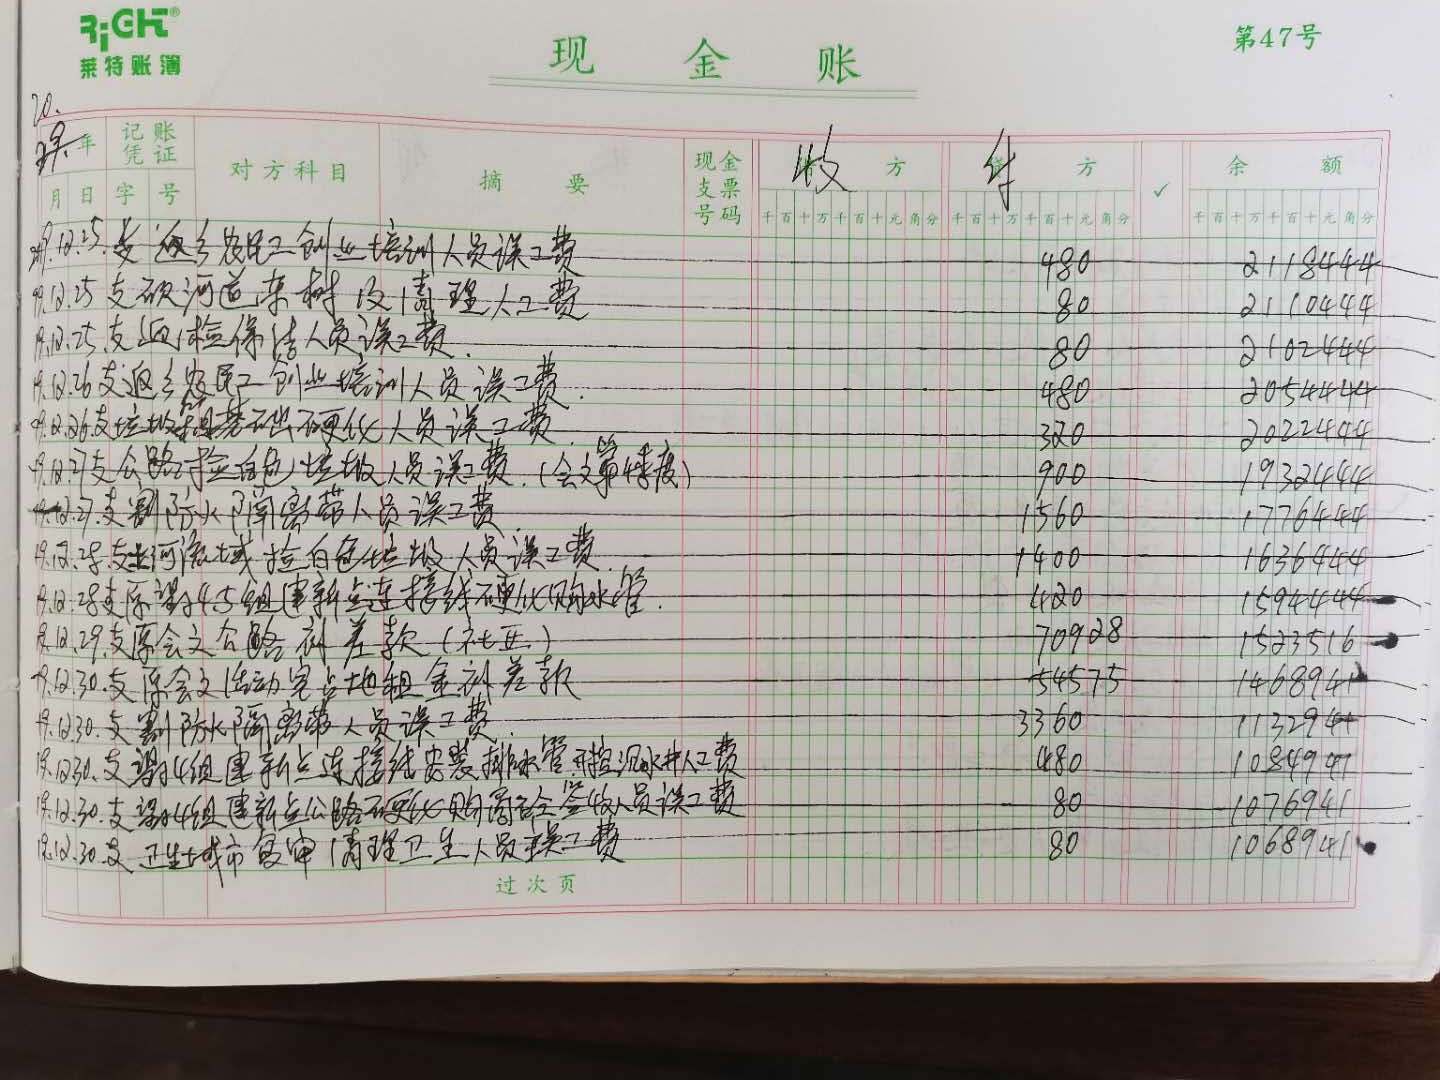 RiGHT®
莱特账簿
现金账
第47号
20.
19.年 记账凭证 对方科目 摘要 现金支票号码 收方 付方 ✓ 余额
月 日 字 号 千百十万千百十元角分 千百十万千百十元角分 千百十万千百十元角分
19.12.25. 支返乡农民工创业培训人员误工费 480 2118444
19.12.25 支砍河道杂树及清理人工费 80 2110444
19.12.25. 支 体检保洁人员误工费. 80 2102444
19.12.26 支返乡农民工创业培训人员误工费. 480 2054444
19.12.26 支垃圾 基础硬化人员误工费 320 2022444
19.12.27 支公路捡白色垃圾人员误工费.(会文第4季度) 900 1932444
19.12.27. 支割防火隔离带人员误工费 1560 1776444
19.12.28. 支 河流域捡白色垃圾人员误工费. 1400 1636444
19.12.28 支原 4 5组建新点连接线硬化购水管. 420 1594444
19.12.29. 支原会文公路补差款( ) 70928 1523516
19.12.30. 支原会文活动室占地租金补差款 54575 1468941
19.12.30. 支割防火隔离带人员误工费. 3360 1132941
19.12.30. 支 4组建新点连接线安装排水管.开挖沉水井人工费 480 1084941
19.12.30. 支 4组建新点公路硬化购 签收人员误工费 80 1076941
19.12.30. 支卫生城市复审清理卫生人员误工费 80 1068941
过次页